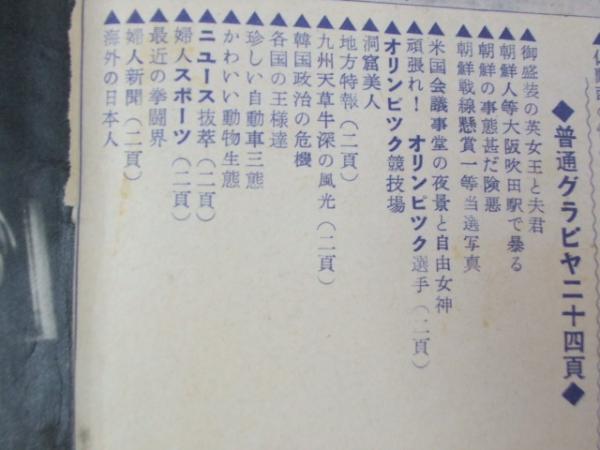 ◆普通グラビヤ二十四頁◆
▲御盛装の英女王と夫君
▲朝鮮人等大阪吹田駅で暴る
▲朝鮮の事態甚だ険悪
▲朝鮮戦線懸賞一等当選写真
▲米国会議事堂の夜景と自由女神
▲頑張れ！オリンピツク選手（二頁）
▲オリンピツク競技場
▲洞窟美人
▲地方特報（二頁）
▲九州天草牛深の風光（二頁）
▲韓国政治の危機
▲各国の王様達
▲珍しい自動車三態
▲かわいい動物生態
▲ニュース抜萃（二頁）
▲婦人スポーツ（二頁）
▲最近の拳闘界
▲婦人新聞（二頁）
▲海外の日本人